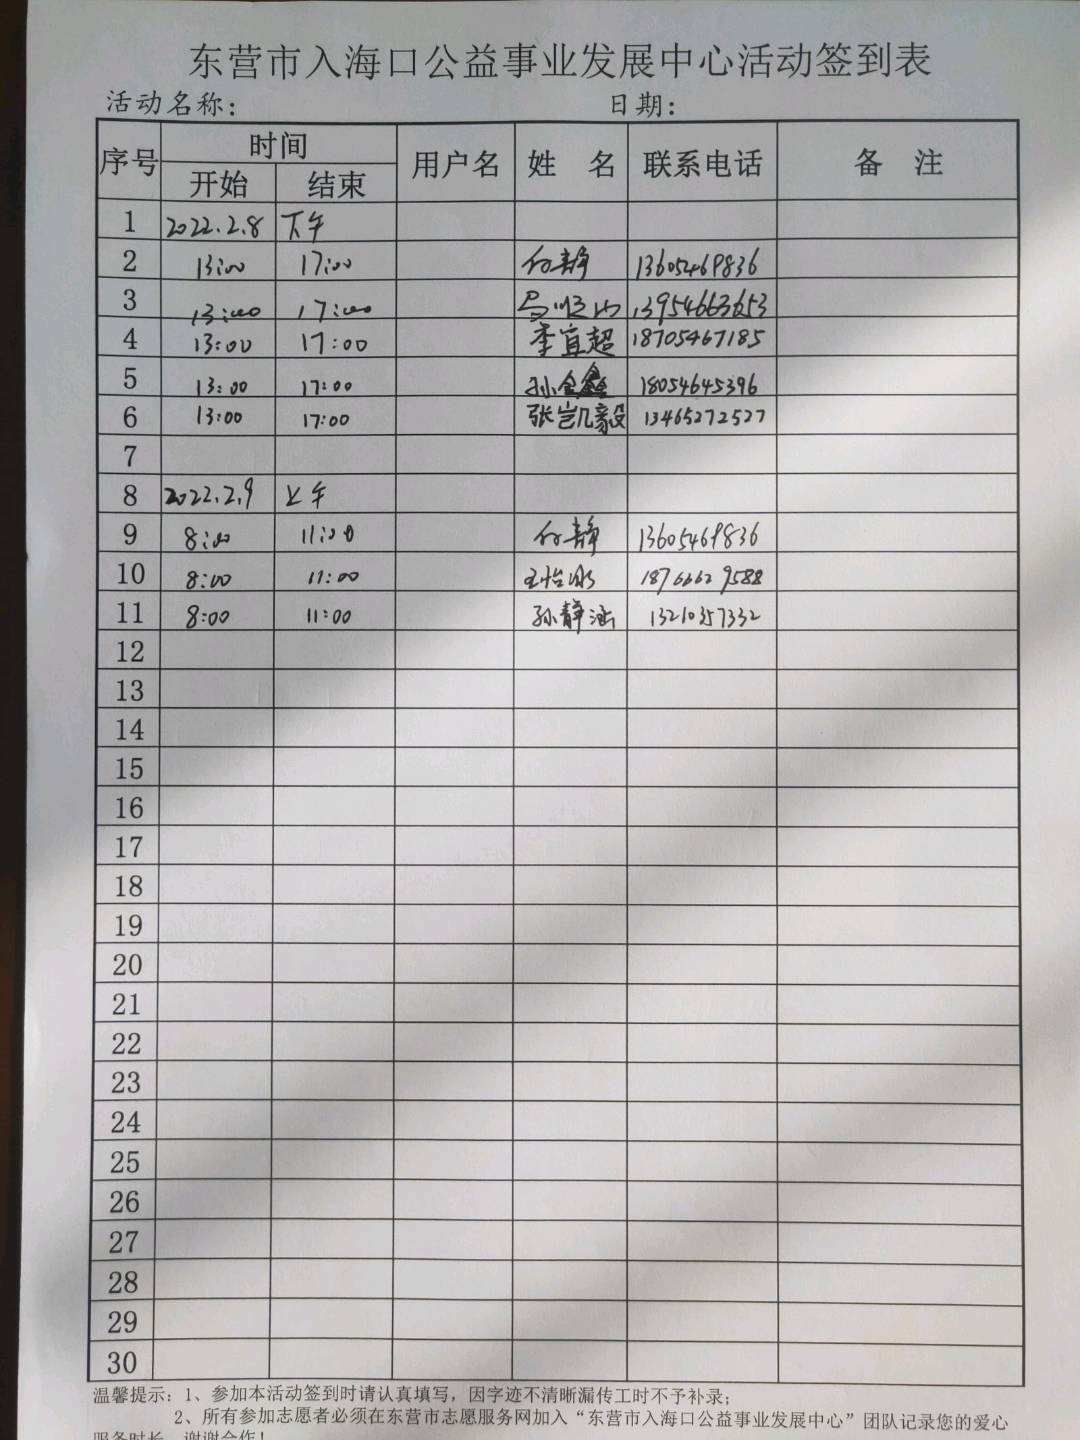 东营市入海口公益事业发展中心活动签到表
活动名称: 日期:
序号 时间 用户名 姓 名 联系电话 备 注
开始 结束
1 2022.2.8 下午
2 13:00 17:00 付静 13605469836
3 13:00 17:00 13954663653
4 13:00 17:00 李宜超 18705467185
5 13:00 17:00 孙金鑫 18054645396
6 13:00 17:00 张岂凡毅 13465272527
7
8 2022.2.9 上午
9 8:00 11:00 付静 13605469836
10 8:00 11:00 王怡冰 18766629588
11 8:00 11:00 孙静涵 13210357332
12
13
14
15
16
17
18
19
20
21
22
23
24
25
26
27
28
29
30
温馨提示: 1、参加本活动签到时请认真填写, 因字迹不清晰漏传工时不予补录;
2、所有参加志愿者必须在东营市志愿服务网加入“东营市入海口公益事业发展中心”团队记录您的爱心
服务时长, 谢谢合作!